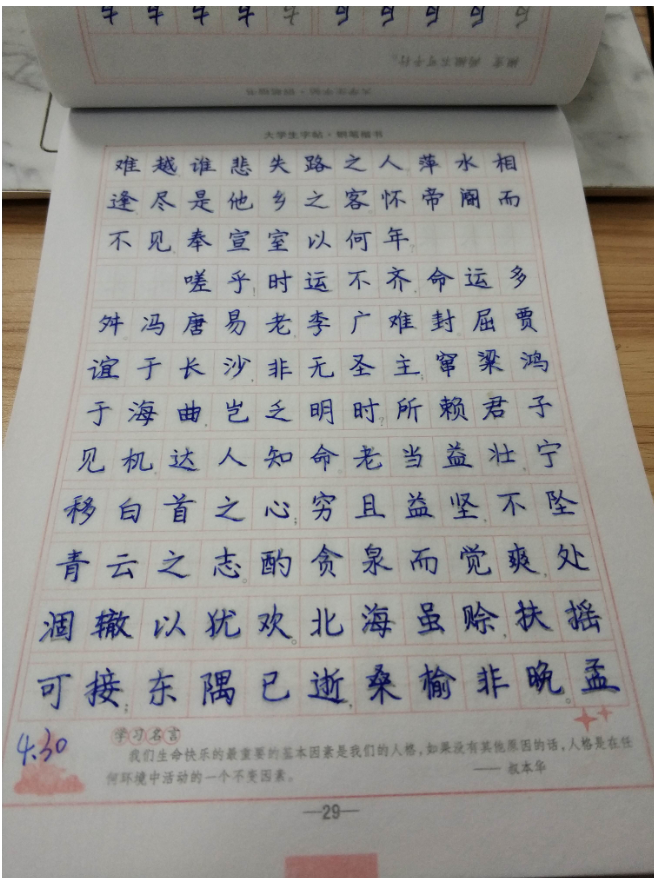 大学生字帖·钢笔楷书
难越谁悲失路之人。萍水相
逢尽是他乡之客。怀帝阍而
不见,奉宣室以何年
嗟乎!时运不齐,命运多
舛。冯唐易老,李广难封。屈贾
谊于长沙,非无圣主;窜梁鸿
于海曲,岂乏明时。所赖君子
见机,达人知命。老当益壮,宁
移白首之心;穷且益坚,不坠
青云之志。酌贪泉而觉爽,处
涸辙以犹欢。北海虽赊,扶摇
可接;东隅已逝,桑榆非晚。孟
4.30
学习名言
我们生命快乐的最重要的基本因素是我们的人格,如果没有其他原因的话,人格是在任
何环境中活动的一个不变因素。
—— 叔本华
—29—